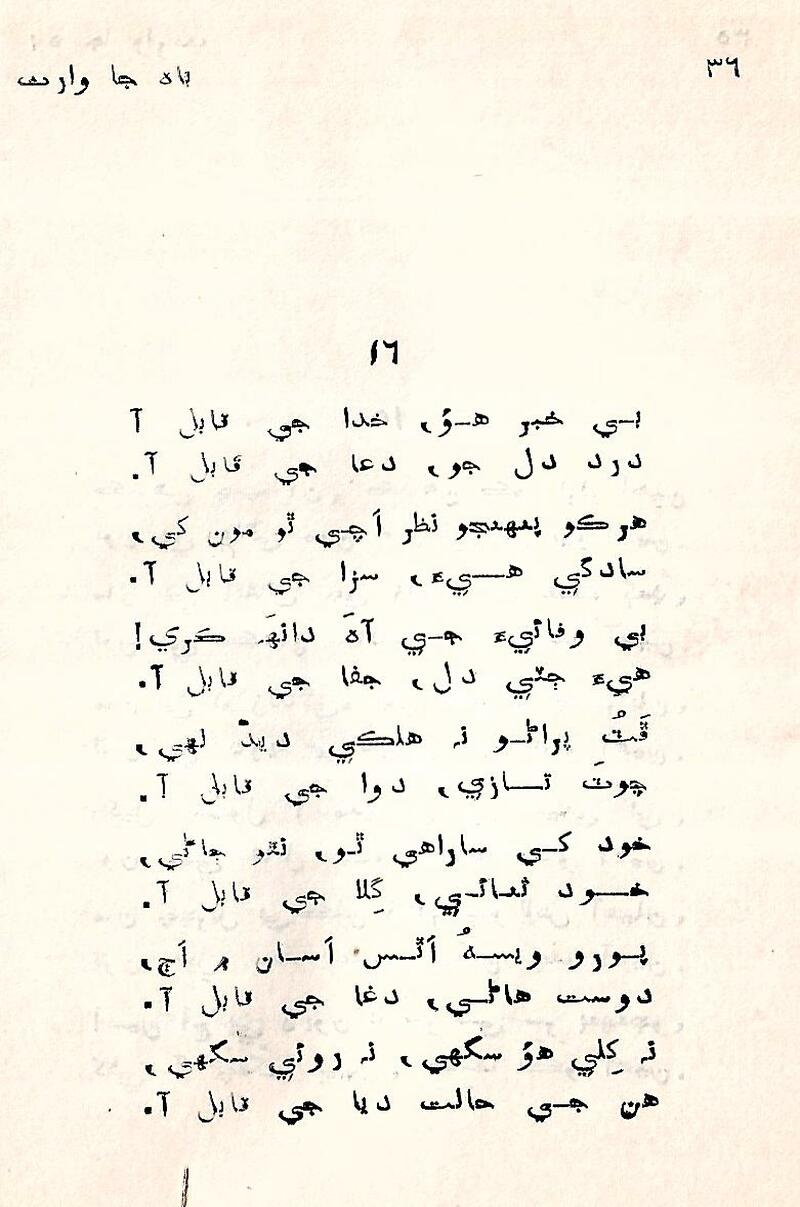 ٣٦
باھ جا وارث
١٦
بي خبر هؤ، خدا جي قابل آ
درد دل جو، دعا جي قابل آ.
هرڪو پنهنجو نظر اَچي ٿو مون کي،
سادگي هيءَ، سزا جي قابل آ.
بي وفائيءَ جي آھَ دانھَ ڪري!
هيءَ چٽي دل، جفا جي قابل آ.
ڦَٽُ پراڻو نہ هلڪي ديد لهي،
چوٽَ تازي، دوا جي قابل آ.
خود کي ساراهي ٿو، نٿو ڄاڻي،
خود ثنائي، گِلا جي قابل آ.
پورو ويسھُ اَٿس اَسان ۾ اَڄ،
دوست هاڻي، دغا جي قابل آ.
نہ کِلي هؤ سگهي، نہ روئي سگهي،
هن جي حالت ديا جي قابل آ.